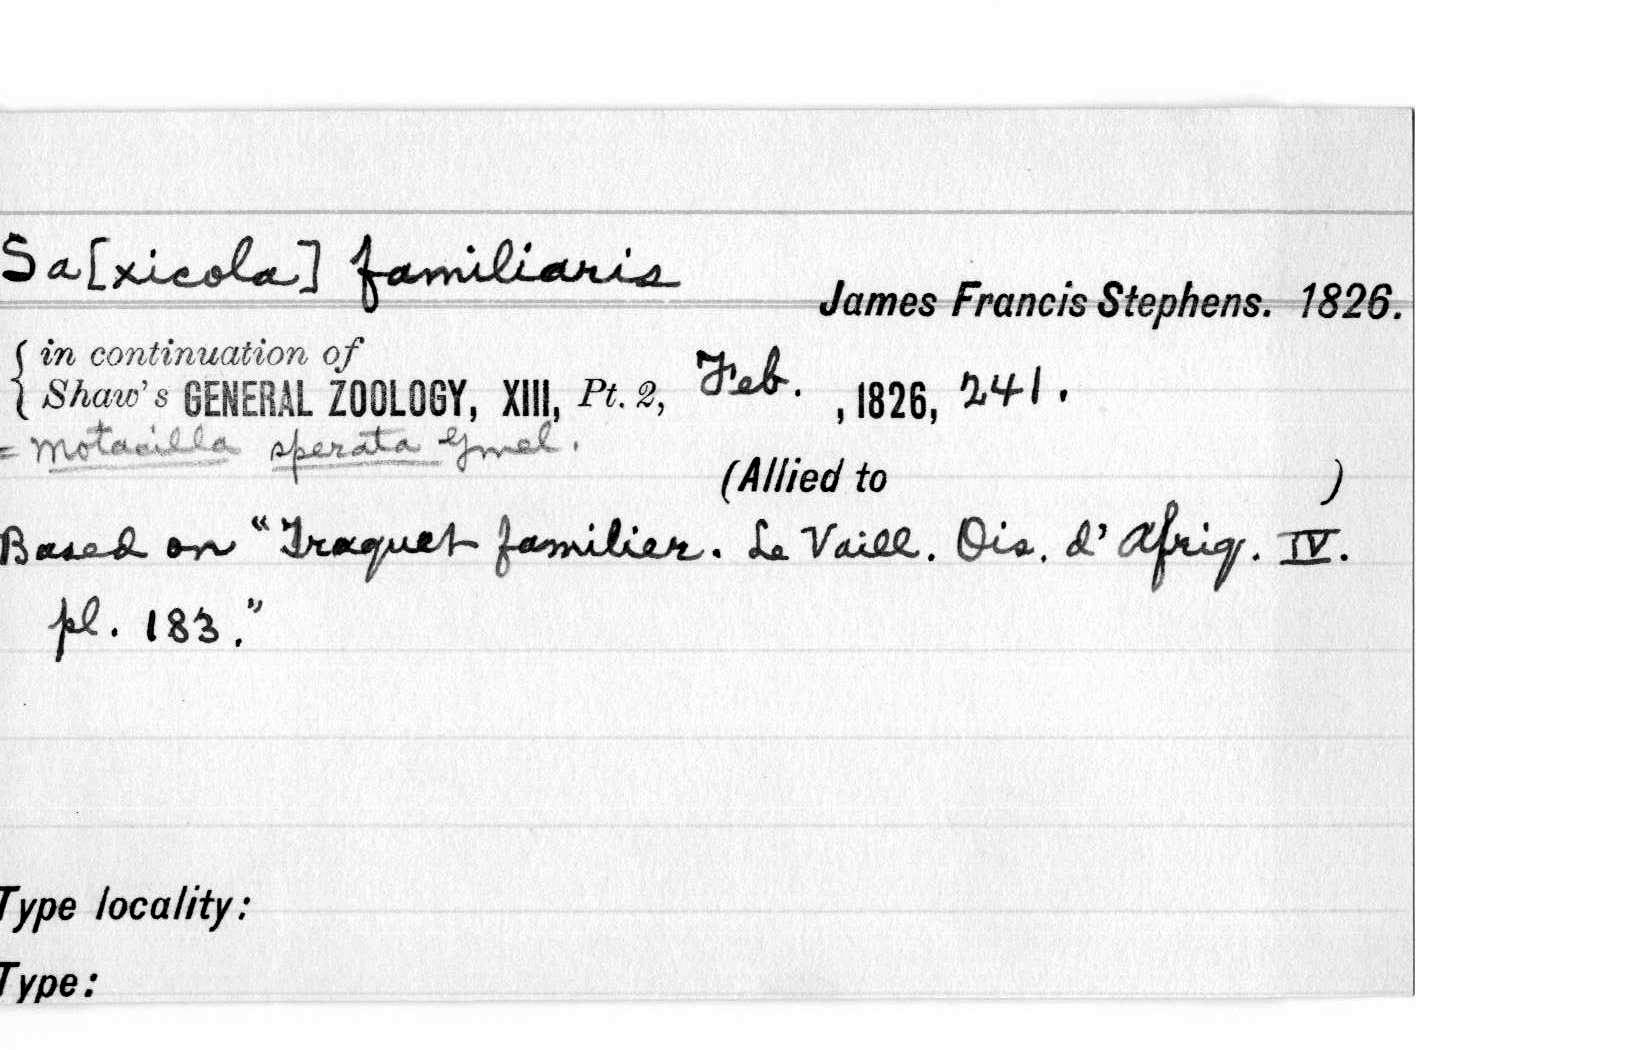 Sa[xicola] familiaris
James Francis Stephens. 1826.
{ in continuation of
Shaw's GENERAL ZOOLOGY, XIII, Pt. 2, Feb. , 1826, 241.
= Motacilla sperata Gmel.
(Allied to )
Based on "Traquet familier. Le Vaill. Ois. d' Afriq. IV.
pl. 183."
Type locality:
Type: